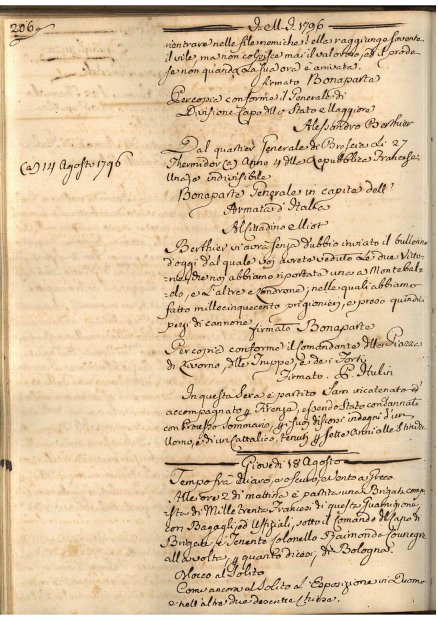 206
D. M. D. 1796
rientrare nelle file nemiche: ella raggiunge sovente
il vile; ma non colpisce mai il valoroso, ed il prode
se non quando la sua ora è arrivata.
firmato Bonaparte
Per copia conforme il Generale di
Divisione Capo dello Stato Maggiore
Alessandro Berthier
Dal quartier Generale di Brescia li 27
(a) 14 Agosto 1796
Thermidor (a) Anno 4 della Repubblica Francese
Una, e indivisibile
Bonaparte Generale in capite dell'
Armata d'Italia
Al Cittadino elliot
Berthier vi avrà senza dubbio inviato il bullettino
d'oggi dal quale voi avrete veduto le due Vitto-
rie, che noi abbiamo riportate una a Montebal-
do, e l'altra a nelle quali abbiamo
fatto millecinquecento prigionieri, e preso quindici
pezzi di cannone
firmato Bonaparte
Per copia conforme il Comandante della Piazza
di Livorno, delle Truppe, e dei Forti
Firmato. P. Hulin
In questa Sera è partito Sam incatenato ed
accompagnato Firenze, essendo Stato condannato
con Processo Sommario, suoi discorsi indegni d'un
Uomo, e di un Cattolico, Sette Anni alle
Giovedì 18 Agosto
Tempo frà chiaro, e oscuro, vento a Greco
Alle ore 2 di mattina è partita una Brigata comp-
osta di Mille Trenta Francesi di questa Guarnigione,
con Bagagli, ed Uffiziali, sotto il Comando del Capo di
Brigata, e Tenente Colonello Raimondo
alla volta, quanto dicesi, di Bologna.
Molo al Solito
Come ancora al Solito l'Esposizione in Duomo
e nell'altre due